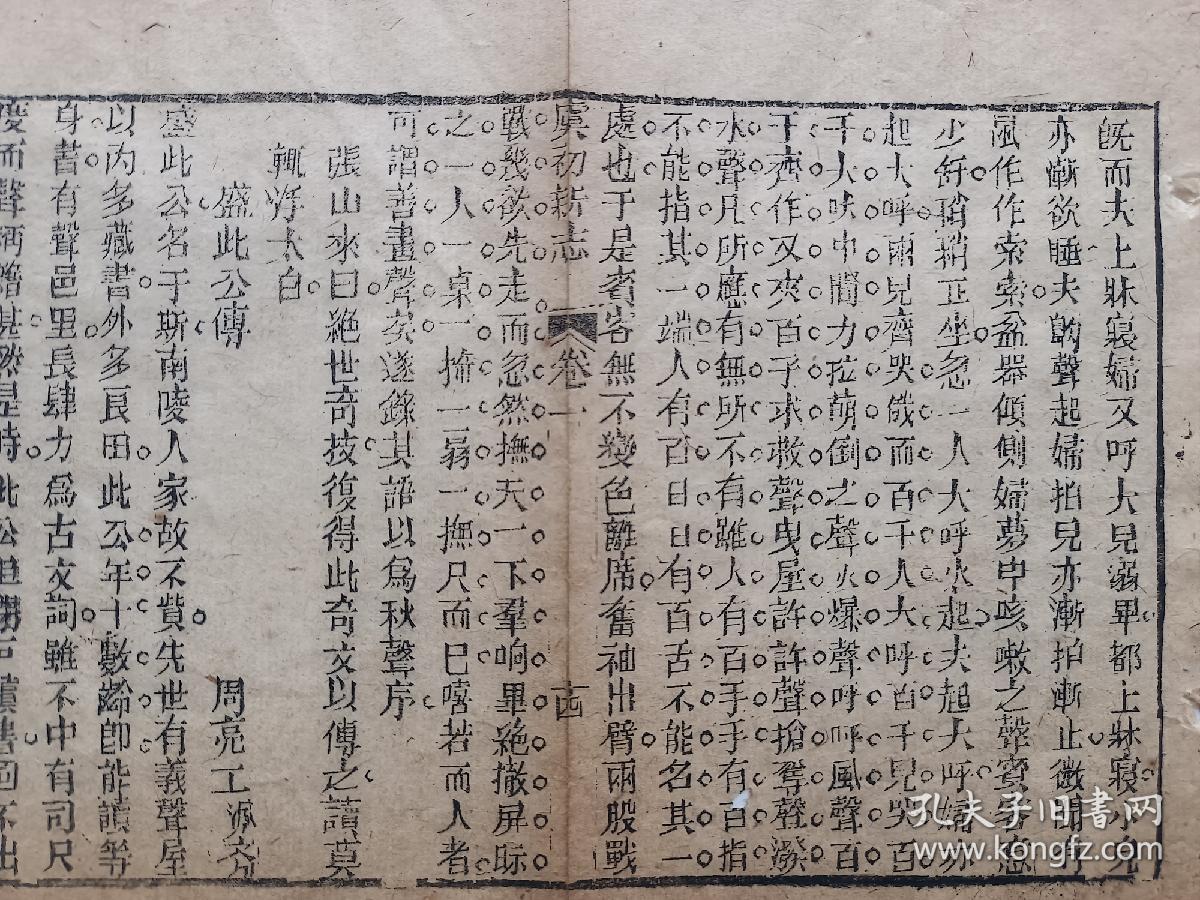 既而夫上牀寢婦又呼大兒溺畢都上牀寢小兒
亦漸欲睡夫齁聲起婦拍兒亦漸拍漸止微聞有
鼠作作索索盆器傾側婦夢中咳嗽之聲賓客意
少舒稍稍正坐忽一人大呼火起夫起大呼婦亦
起大呼兩兒齊哭俄而百千人大呼百千兒哭百
千犬吠中間力拉崩倒之聲火爆聲呼呼風聲百
千齊作又夾百千求救聲曳屋許許聲搶奪聲潑
水聲凡所應有無所不有雖人有百手手有百指
不能指其一端人有百口口有百舌不能名其一
處也于是賓客無不變色離席奮袖出臂兩股戰
虞初新志 卷一 十四
戰幾欲先走而忽然撫尺一下羣响畢絶撤屏眎
之一人一桌一椅一扇一撫尺而已嘻若而人者
可謂善畫聲矣遂錄其語以爲秋聲序
張山來曰絶世奇技復得此奇文以傳之讀莫
輒浮大白
盛此公傳 周亮工
盛此公名于斯南陵人家故不貲先世有義聲屋
以內多藏書外多良田此公年十數齡即能讀等
身書有聲邑里長肆力爲古文詞雖不中有司尺
度而聲
孔夫子旧書网
www.kongfz.com